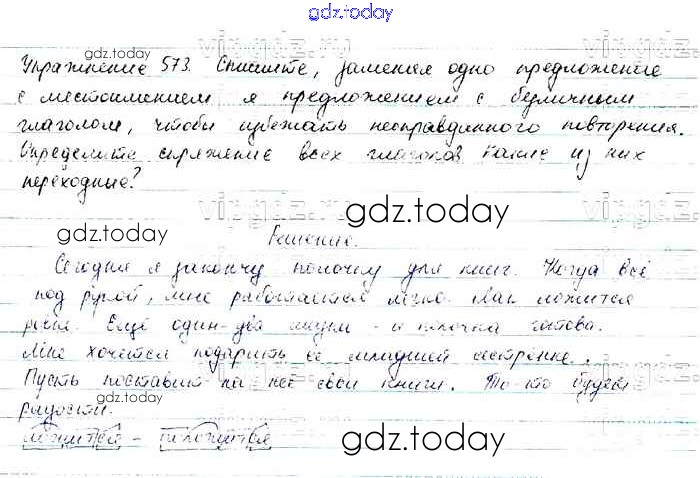 gdz.today
gdz.today
Упражнение 573. Спишите, заменяя одно предложение
с местоимением я предложением с безличным
глаголом, чтобы избежать неоправданного повторения.
Определите спряжение всех глаголов. Какие из них
переходные?
gdz.today
gdz.today
Решение.
Сегодня я закончу полочку для книг. Когда всё
под рукой, мне работается легко. Лак ложится
Ещё один-два и полочка готова.
Мне хочется подарить её младшей сестрёнке.
Пусть поставит на неё свои книги. То-то будет
радости.
gdz.today
ложится - положится
gdz.today
gdz.today